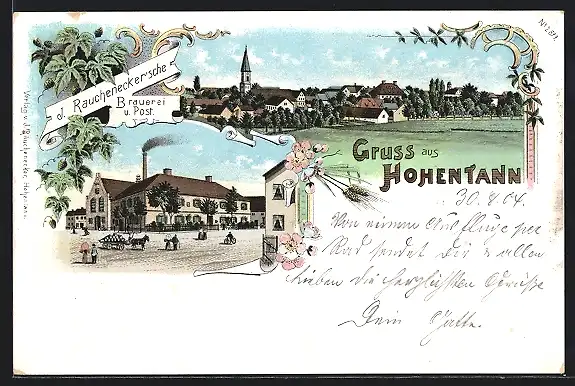 J. Rauchenecker'sche
Brauerei
u. Post.
Gruss aus
HOHENTANN
30.4.04.
Von einem Ausfluge per
Rad sendet Dir u. allen
Lieben die herzlichsten Grüße
Dein
Verlag v. J. Rauchenecker, Hohentann.